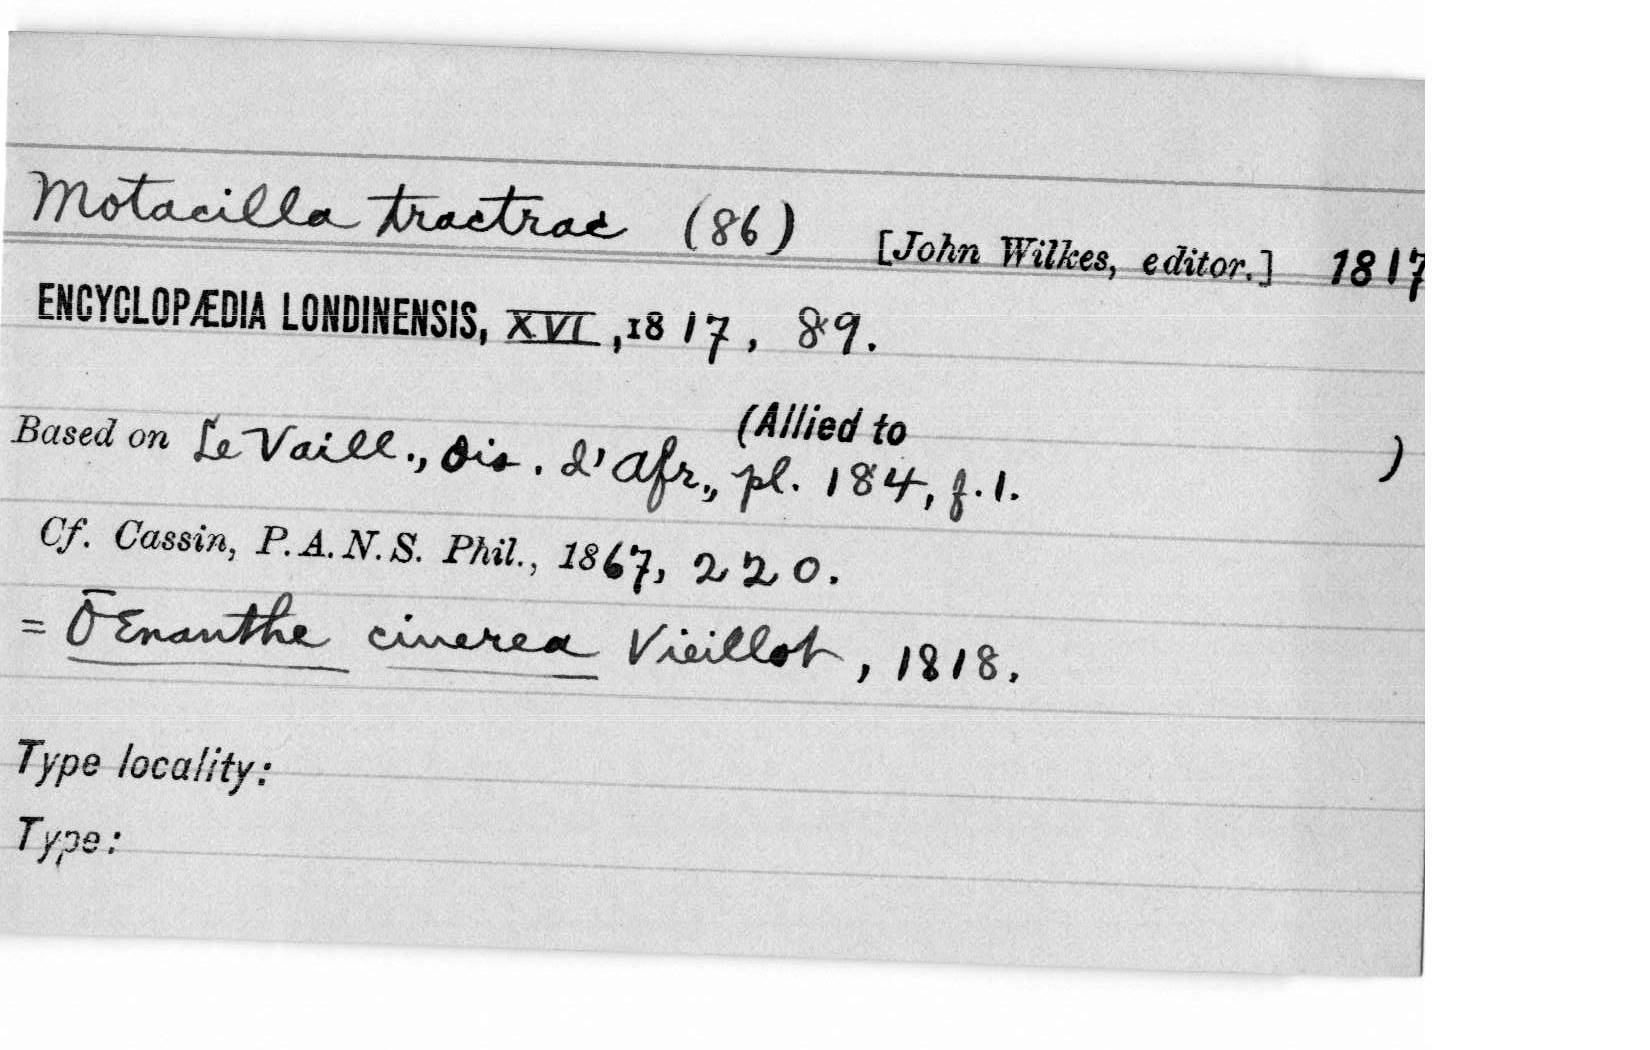 Motacilla tractrac (86) [John Wilkes, editor.] 1817
ENCYCLOPÆDIA LONDINENSIS, XVI, 1817, 89.
(Allied to )
Based on Le Vaill., Ois. d'Afr., pl. 184, f. 1.
Cf. Cassin, P. A. N. S. Phil., 1867, 220.
= Œnanthe cinerea Vieillot, 1818.
Type locality:
Type: